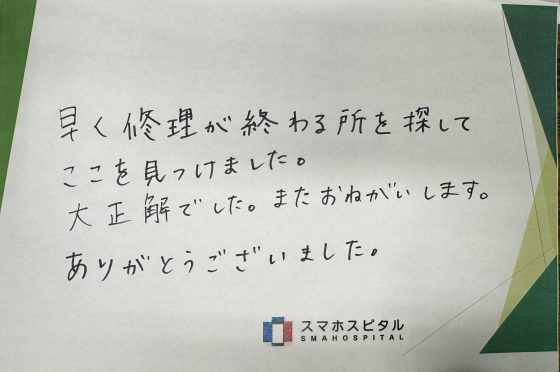 早く修理が終わる所を探して
ここを見つけました。
大正解でした。またおねがいします。
ありがとうございました。
スマホスピタル
SMAHOSPITAL